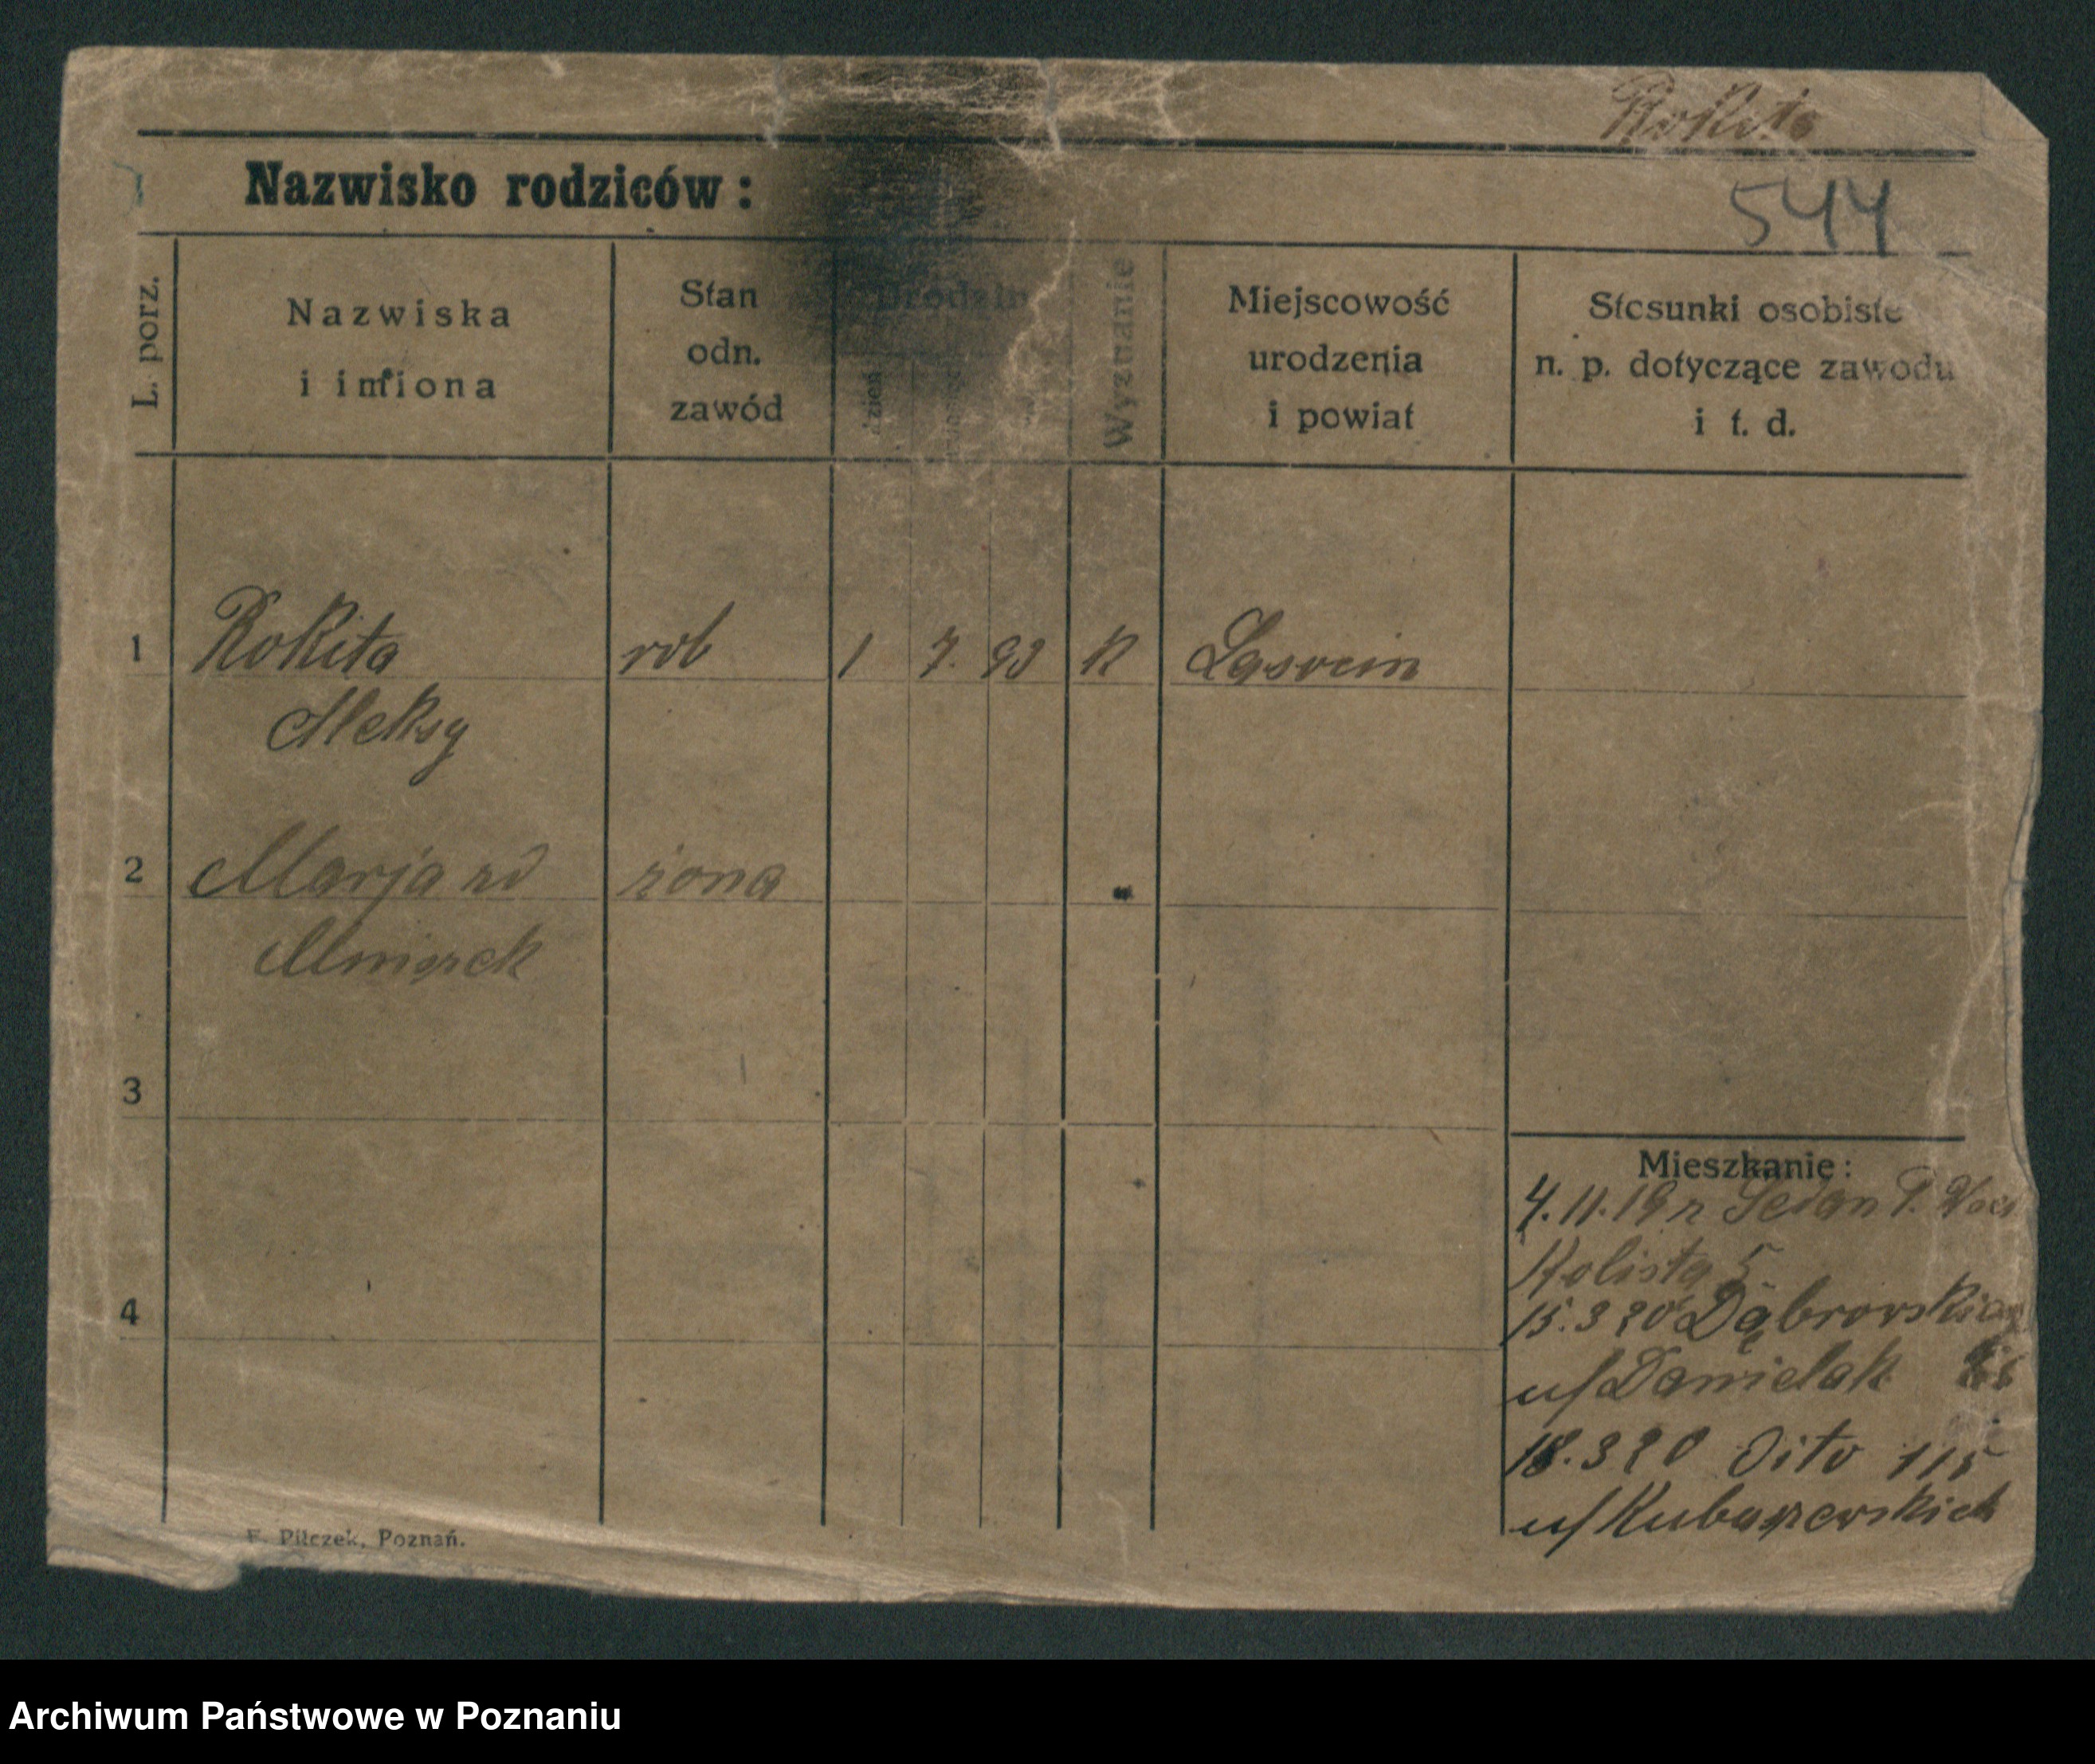 Rokita
Nazwisko rodziców:
544
L. porz.
Nazwiska
i imiona
Stan
odn.
zawód
Urodzin
dzień
Wyznanie
Miejscowość
urodzenia
i powiat
Stosunki osobiste
n. p. dotyczące zawodu
i t. d.
1 Rokita rob 1 7. 93 K
Aleksy
2 Marja żona
3
Mieszkanie:
4.11.19 r
Kolista 5
4
15.3 20 Dąbrowskiego
u/Danielak
18.3 20 dito 115
u/
F. Pilczek, Poznań.
Archiwum Państwowe w Poznaniu